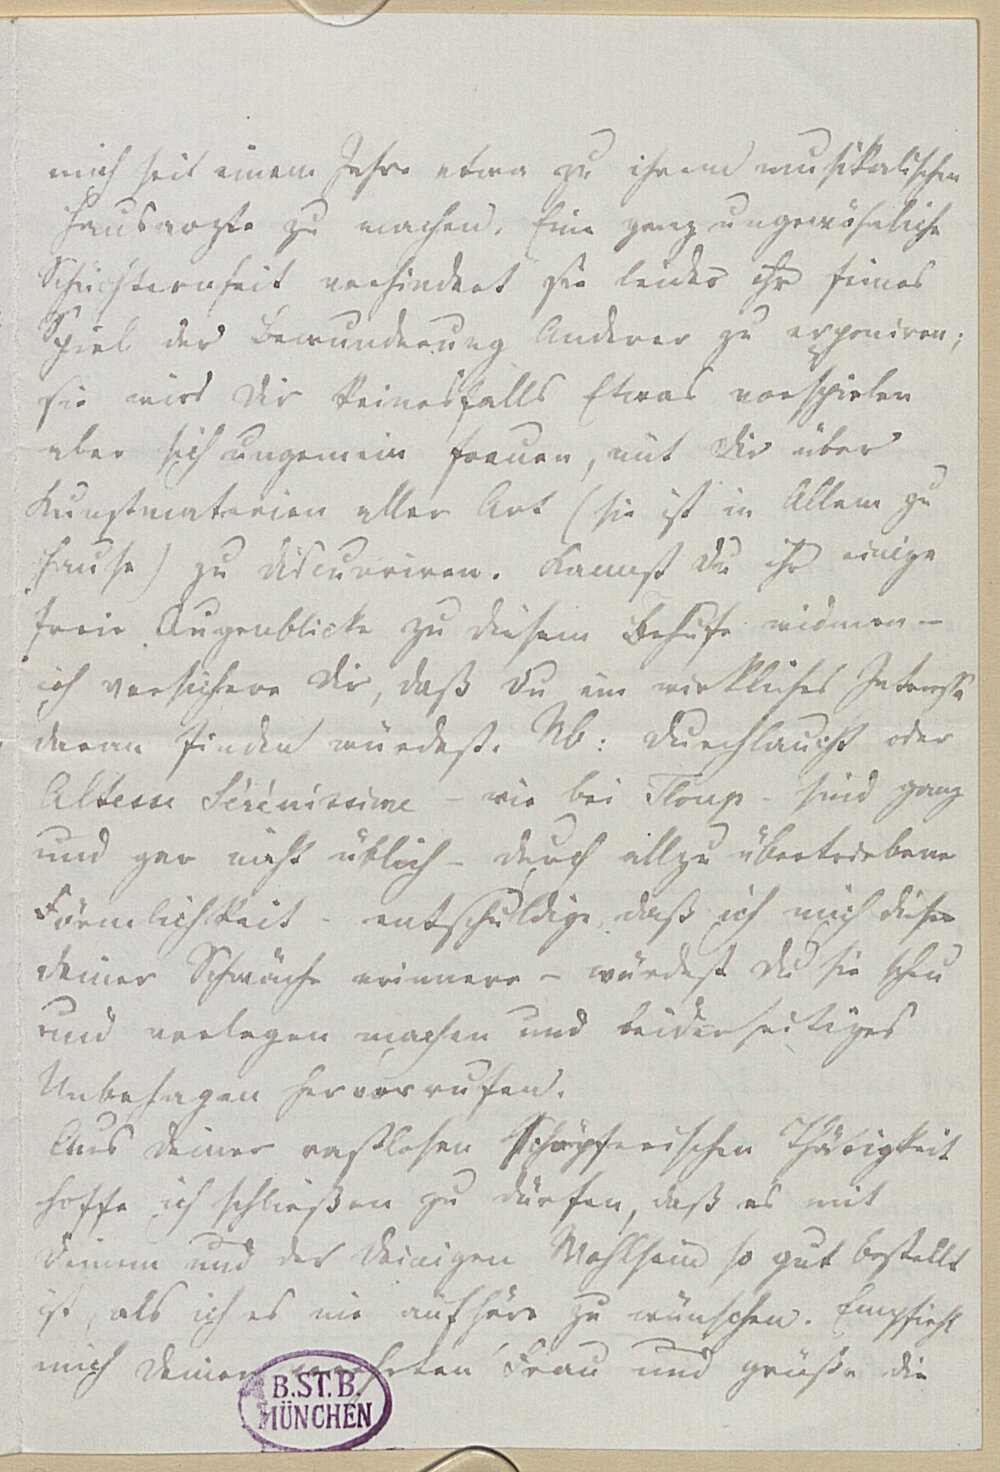 mich seit einem Jahre etwa zu ihrem musikalischen
Hausarzte zu machen. Eine ganz ungewöhnliche
Schüchternheit verhindert sie leider ihr feines
Spiel der Bewunderung Anderer zu exponiren;
sie wird Dir keinesfalls Etwas vorspielen
aber sich ungemein freuen, mit Dir über
Kunstmaterien aller Art (sie ist in Allem zu
Hause) zu discurriren. Kannst Du ihr einige
freie Augenblicke zu diesem Behufe widmen –
ich versichere Dir, daß Du ein wirkliches Interesse
daran finden würdest. Nb: Durchlaucht oder
Altesse Sérénissime – wie bei – sind ganz
und gar nicht üblich – durch allzu übertriebene
Förmlichkeit – entschuldige, daß ich mich dieser
Deiner Schwäche erinnere – würdest Du sie scheu
und verlegen machen und beiderseitiges
Unbehagen hervorrufen.
Aus Deiner rastlosen schöpferischen Thätigkeit
hoffe ich schließen zu dürfen, daß es mit
Deinem und der Deinigen Wohlsein so gut bestellt
ist, als ich es nie aufhöre zu wünschen. Empfiehl
mich Deiner verehrten Frau und grüße die
B.ST.B.
MÜNCHEN